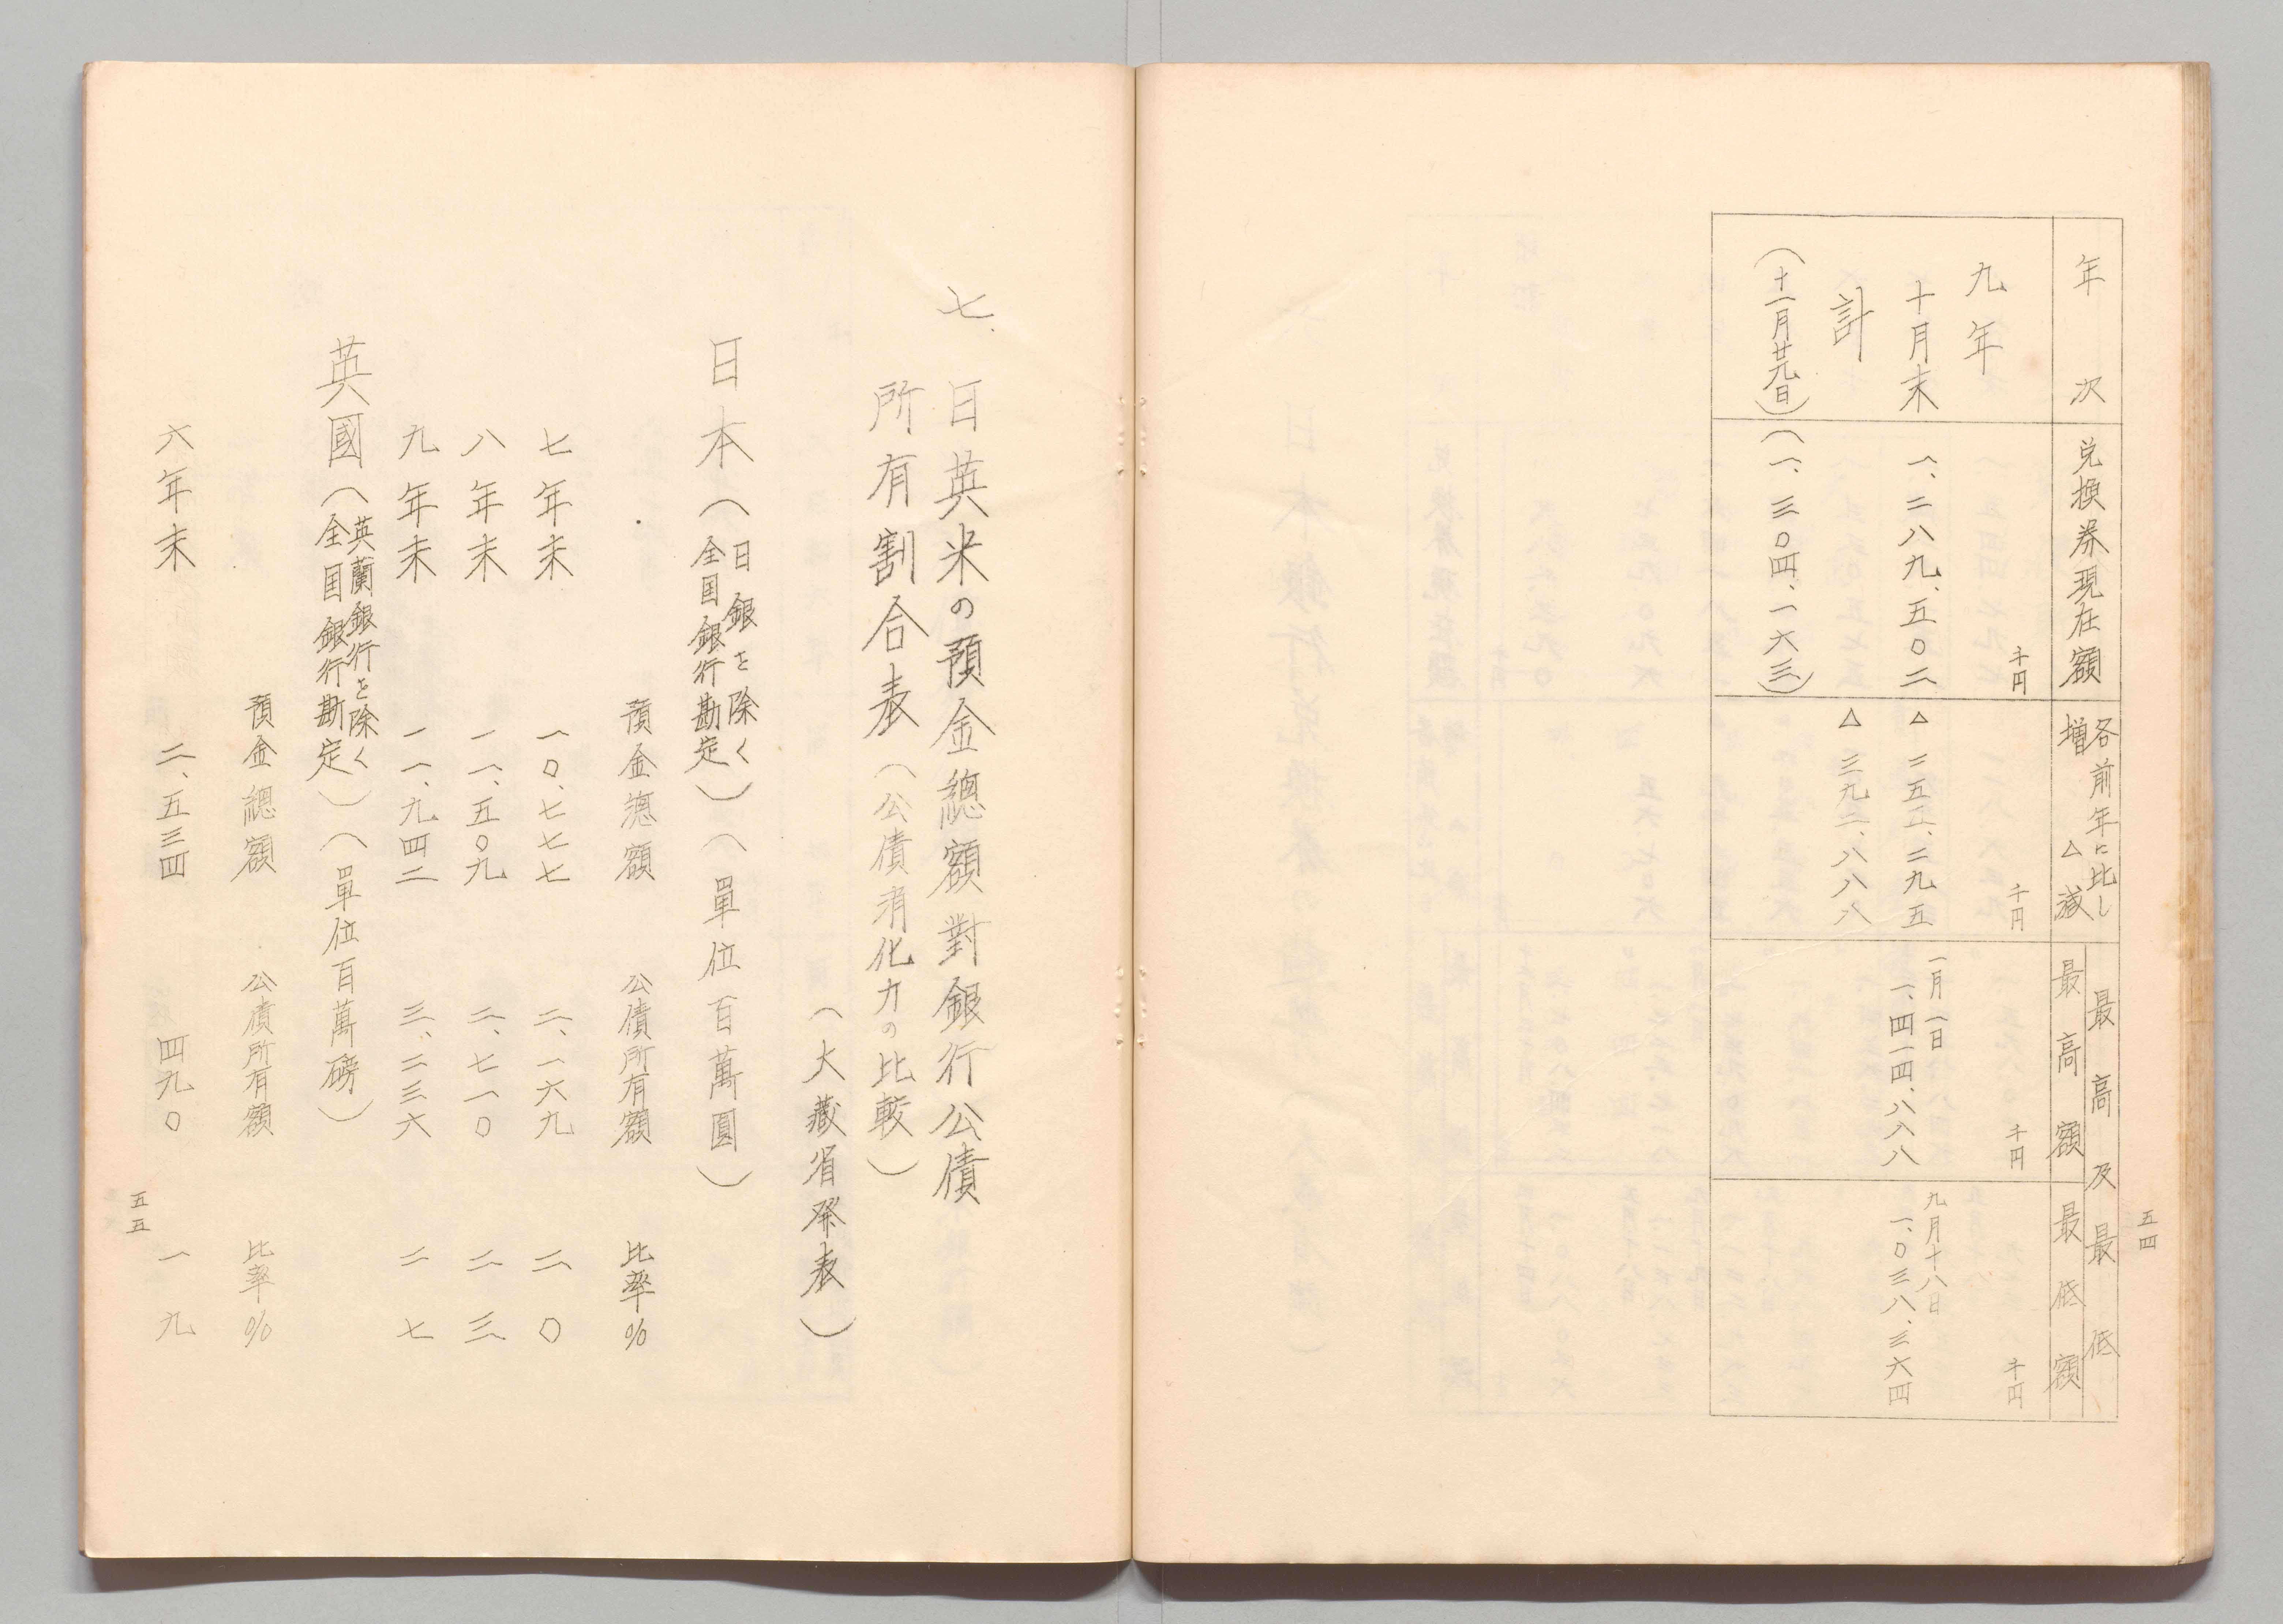 五四
年次
兌換券現在額
各前年に比し
増△減
最高及最低
最高額
最低額
千円
千円
千円
千円
九年
十月末
一、二八九、五〇二
△二五五、二九五
一月一日
一、四一四、八八八
九月十八日
一、〇三八、三六四
計
△三九二、八八八
(十一月廿九日)
(一、三〇四、一六三)
七、日英米の預金總額對銀行公債
所有割合表(公債消化力の比較)
(大藏省発表)
日本(日銀を除く
全国銀行勘定)(單位百萬圓)
預金總額 公債所有額 比率%
七年末 一〇、七七七 二、一六九 二〇
八年末 一一、五〇九 二、七一〇 二三
九年末 一一、九四二 三、二三六 二七
英國(英蘭銀行を除く
全国銀行勘定)(單位百萬磅)
預金總額 公債所有額 比率%
六年末 二、五三四 四九〇 一九
五五